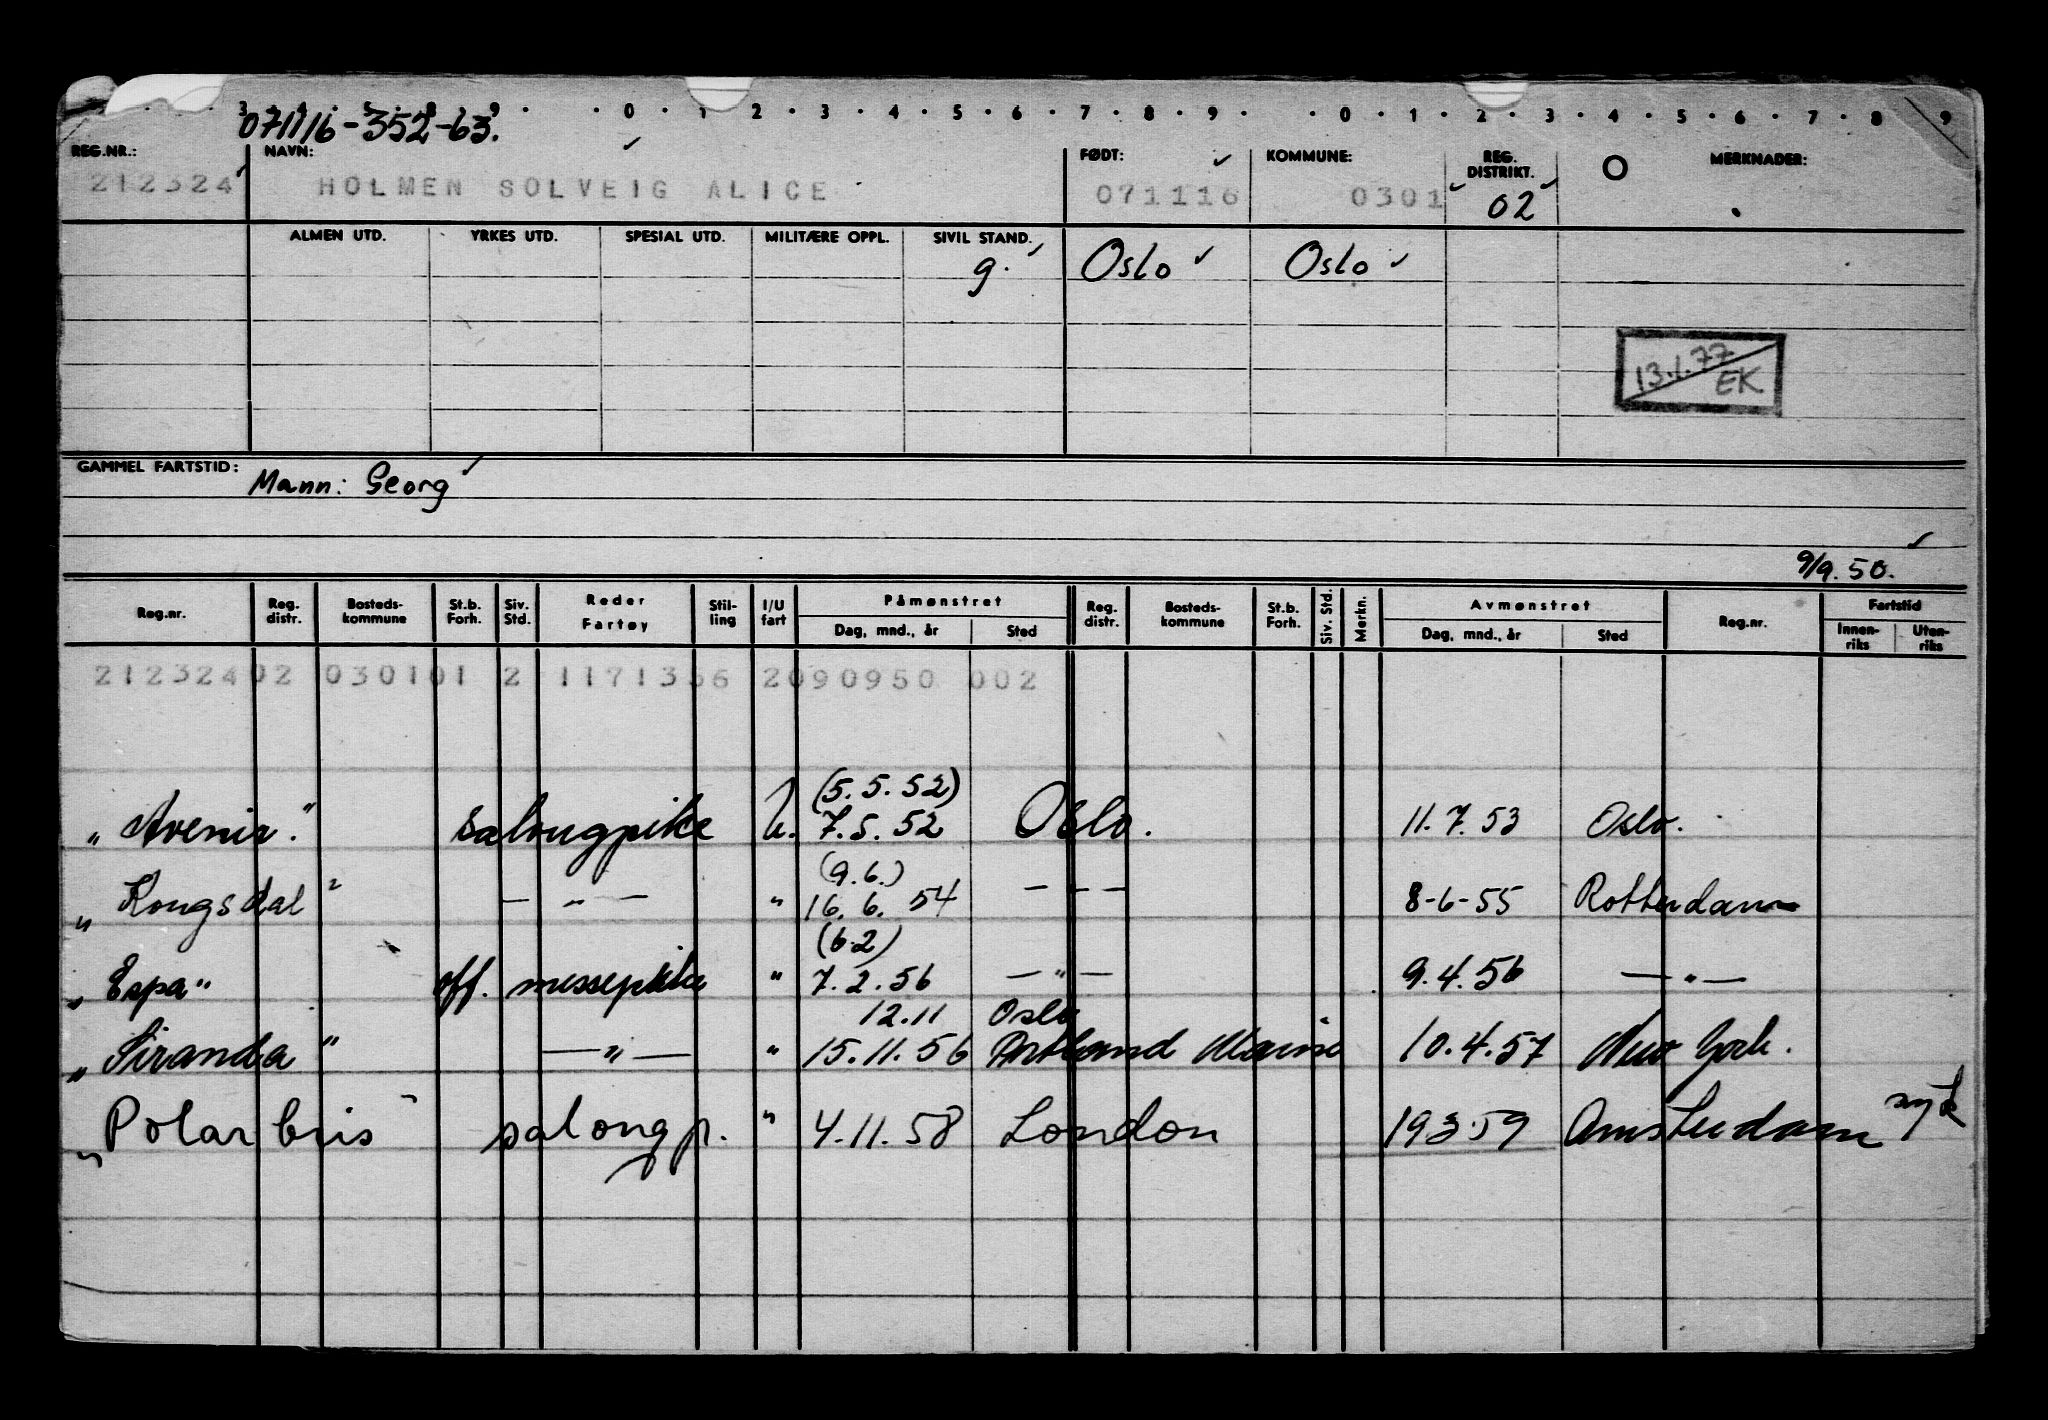 3 · 4 · 5 · 8 · 9 · · 0 · 1 · 2 · 3 · 4 · 5 · 6 · 7 · 8 · 9 · · 0 · 1 · 2 · 3 · 4 · 5 · 6 · 7 · 8 · 9
071116-352-63.
REG.NR.: NAVN: FØDT: KOMMUNE: REG. DISTRIKT. MERKNADER:
212324 HOLMEN SOLVEIG ALICE 071116 0301 02
ALMEN UTD. YRKES UTD. SPESIAL UTD. MILITÆRE OPPL. SIVIL STAND.
g. Oslo Oslo
13.1.77
EK
GAMMEL FARTSTID: Mann: Georg
9/9.50.
Reg.nr. Reg. distr. Bosteds-kommune St.b. Forh. Siv. Std. Reder Fartøy Stil-ling I/U fart Påmønstret Reg. distr. Bosteds-kommune St.b. Forh. Siv. Std. Merkn. Avmønstret Reg.nr. Fartstid
Dag, mnd., år Sted Dag, mnd., år Sted Innen-riks Uten-riks
212324 02 0301 01 2 1171356 2 090950 002
(5.5.52)
„Avenir." salongpike U. 7.5.52 Oslo. 11.7.53 Oslo.
(9.6.)
„Kongsdal" — „ — " 16.6.54 — „ — 8-6-55 Rotterdam
(6.2)
„Espa" off. messepike " 7.2.56 — " — 9.4.56 — " —
12.11 Oslo
„Siranda" — " — " 15.11.56 Portland Maine 10.4.57 New York.
„Polarbris" salongp. " 4.11.58 London 19.3.59 Amsterdam syk